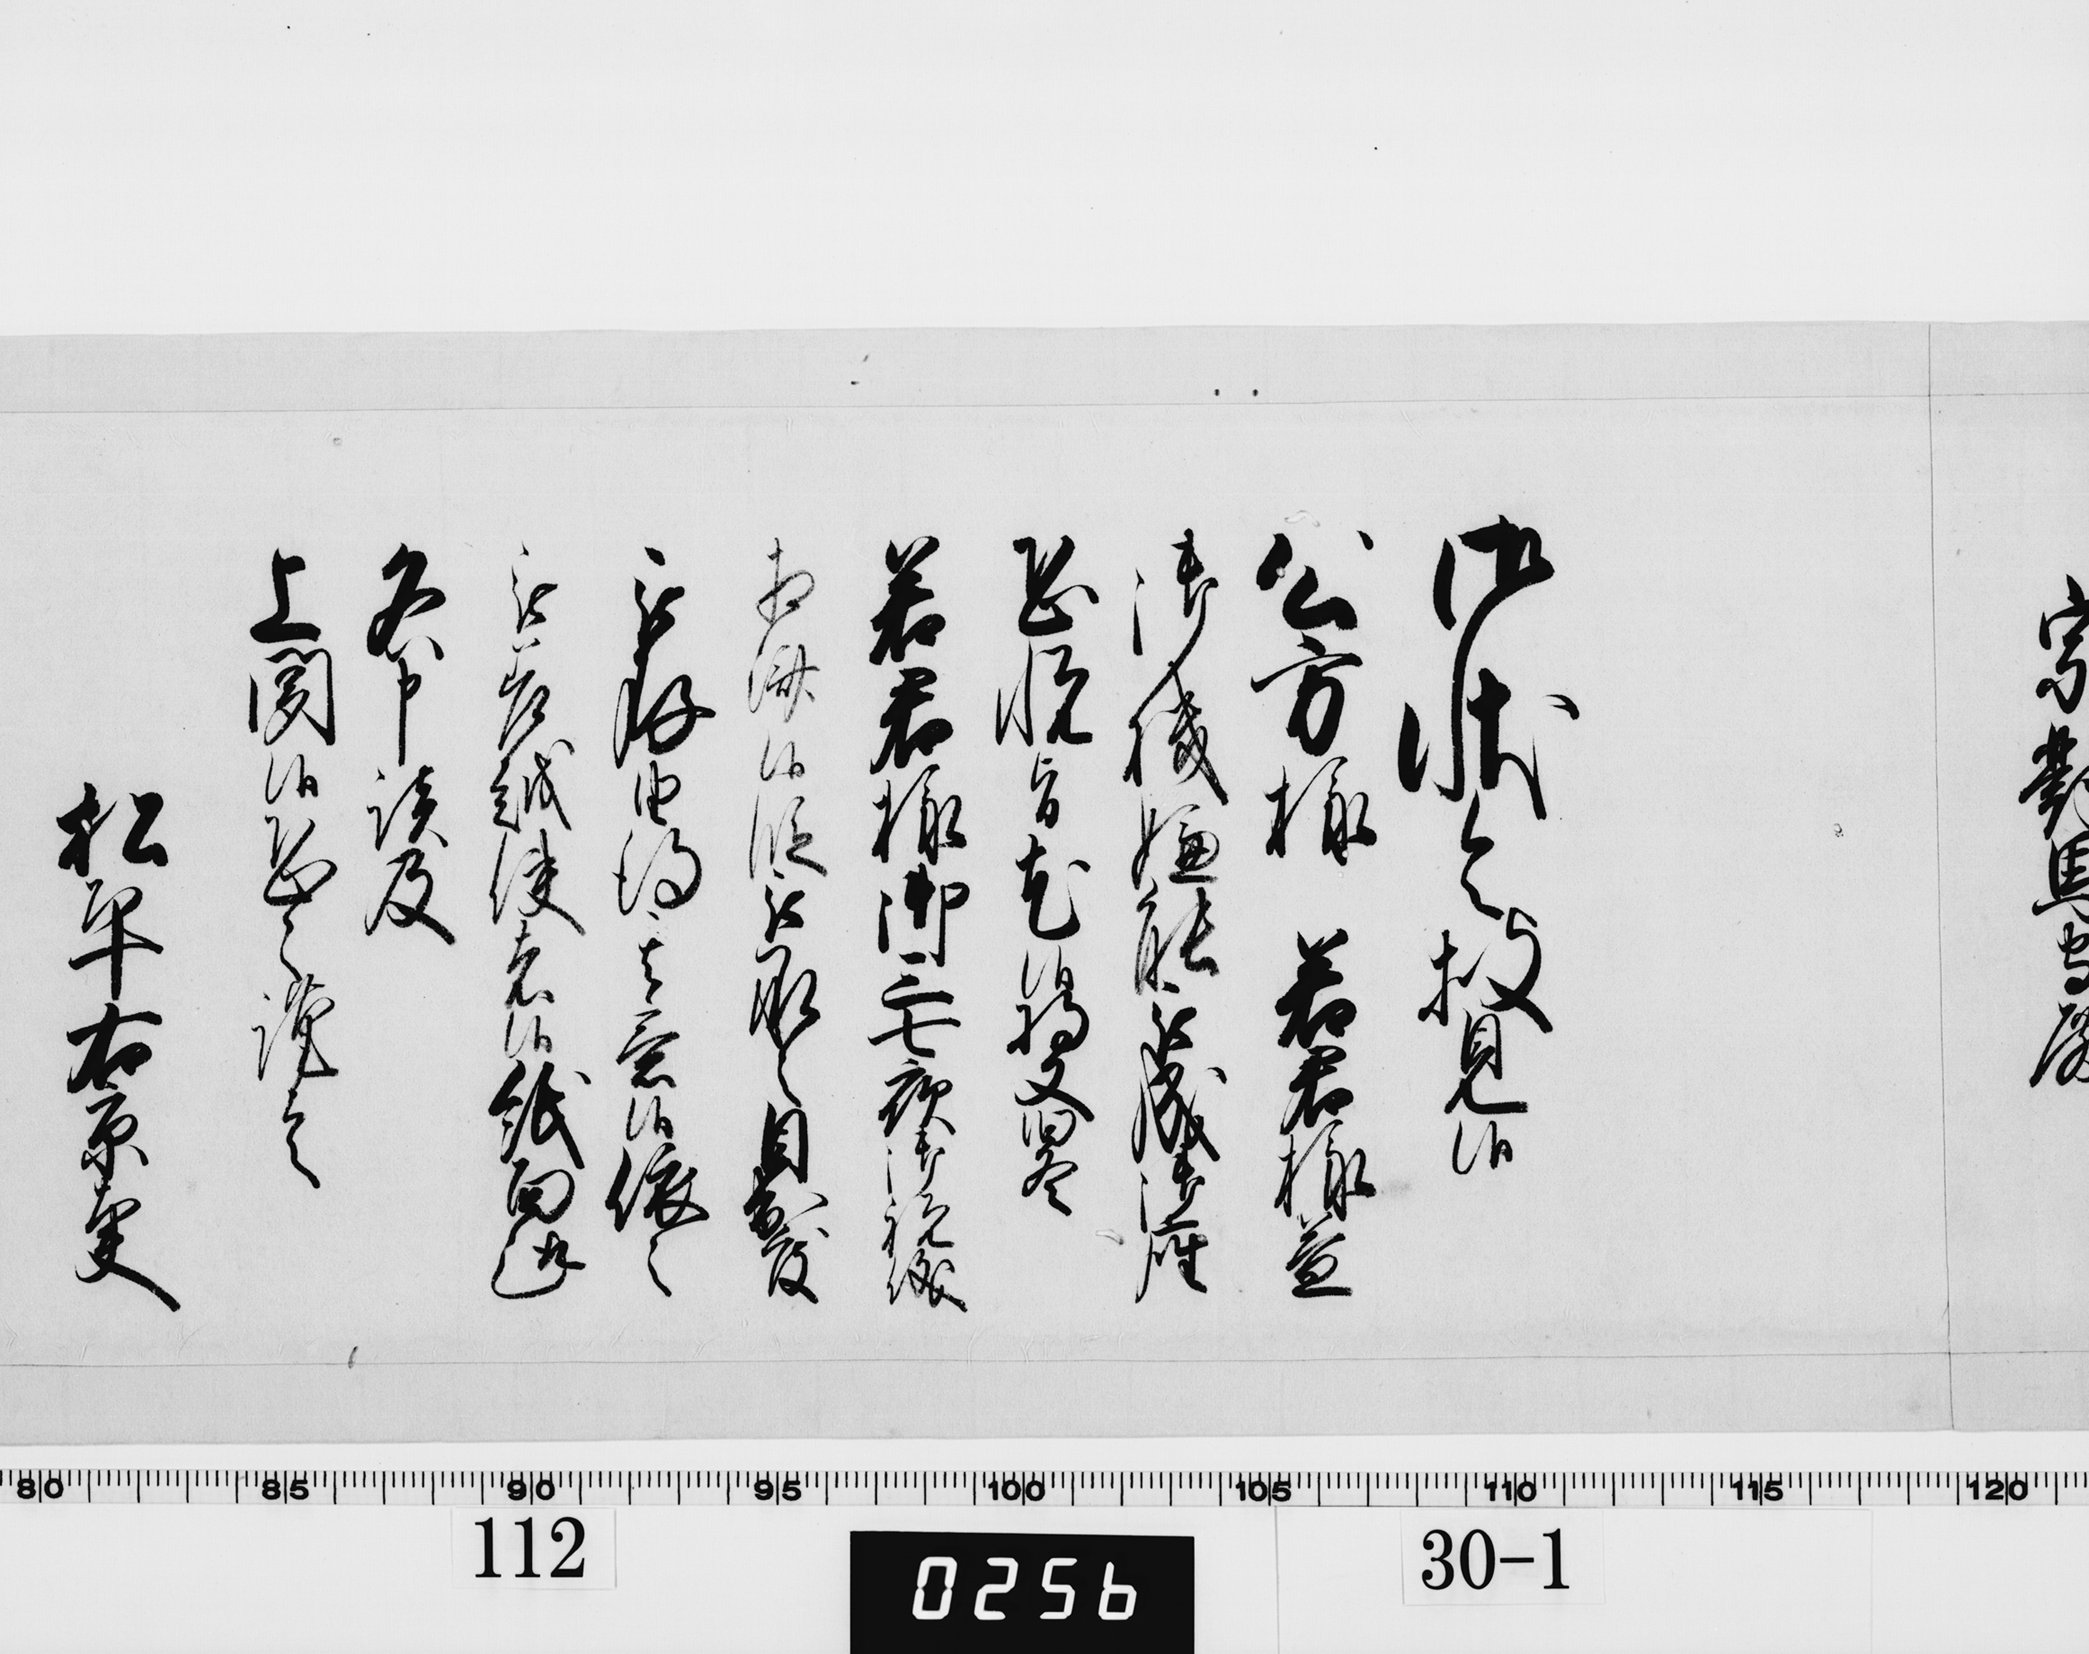 宗對馬守殿
御状令拝見候
公方様 若君様益
御機嫌能被成御座
恐悦旨尤候将又旧冬
若君様御三七夜御祝儀
相済候段被承之目出度
被存由得其意候依之
被差越使者候紙面趣
各申談及
上聞候恐々謹言
松平右京大夫
80 85 90 95 100 105 110 115 120
112
0256
30-1